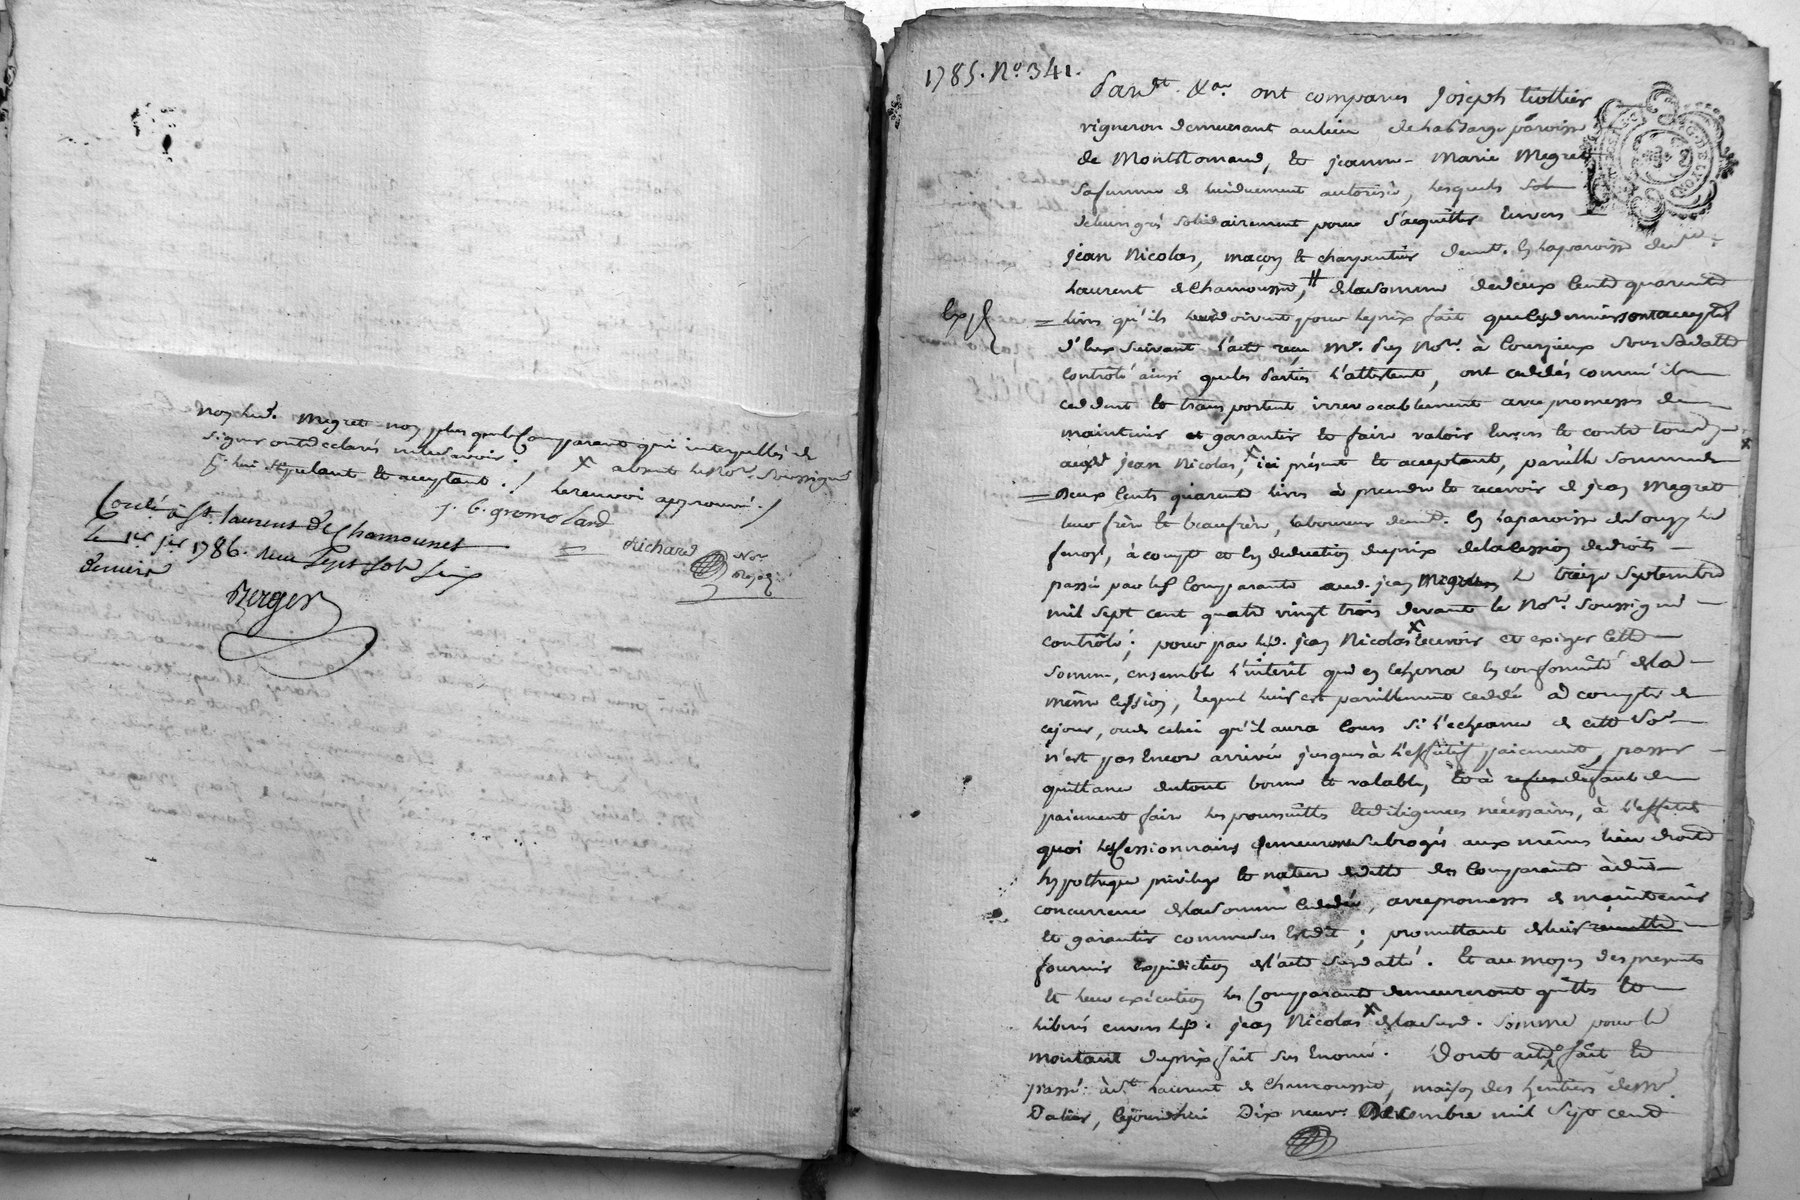 non led. Megret non plus que les Comparants qui interpellés de
signer ont declarés ne le savoir. x absent le Nore. soussigné
p. lui stipulant et acceptant ./ le renvoi approuvé ./
J. C. gromoland
Richard Nore. Royal
Conlé à St. laurent de Chamousset
le 1er jer 1786. Reçu sept sols six
deniers
Berger
1785. No. 341.
Pardt. &a. ont comparus Joseph
vigneron demeurant au lieu de paroisse
de Montromand, et jeanne-Marie Megret
sa femme de lui duement autorisée, lesquels
de leur gré solidairement pour s'acquitter Envers
jean Nicolas, maçon et charpentier demt. En la paroisse de st.
Laurent de Chamousset, # de la somme de deux Cents quarente
Exp.
livres qu'ils lui doivent pour le prix fait que ce dernier
d'Eux suivant l'acte reçu Me. Nore. à Courzieux sous sa datte
Controlé ainsi que les parties l'attestent, ont ceddés comme ils
ceddent et transportent irrevocablement avec promesses de
maintenir et garantir et faire valoir Envers et contre tous
aud. jean Nicolas, x ici présent et acceptant, pareille somme de
Deux Cents quarente livres à prendre et recevoir de jean Megret
leur frère et beaufrère, laboureur demt. En la paroisse de
à compte et En deduction du prix de la Cession de droits
passée par les Comparants aud. jean Megret le treize Septembre
mil sept cent quatre vingt trois devant le Nore. soussigné
contrôlé; pour par led. jean Nicolas x recevoir et exiger cette
somme, ensemble l'interêt que en En conformité de la
même Cession, lequel leur est pareillement ceddé à compter de
ce jour, ou de celui qu'il aura Cours si l'echeance de cette
n'est pas Encore arrivée jusques à l'effectif paiement, passer
quittance du tout bonne et valable, Et à refus défaut de
paiement faire les poursuittes et diligences nécessaires, à l'effet de
quoi les Cessionnaires demeurent subrogés aux mêmes lieu droits
hypotheque privilege et nature de dette des Comparants à due
concurrence de la somme Ceddée, avec promesses de maintenir
et garantir comme sus Est dit; promettant de leur remettre
fournir expedition de l'acte susdatté. Et au moyen des presentes
et leur exécution les Comparants demeureront quittes et
liberés envers led. jean Nicolas x de la susd. somme pour le
montant du prix fait sus Enoncé. Dont acte fait et
passé à St. Laurent de Chamousset, maison des heritiers de sr.
Dalin, Cejourdhui Dix neuf Décembre mil sept cent